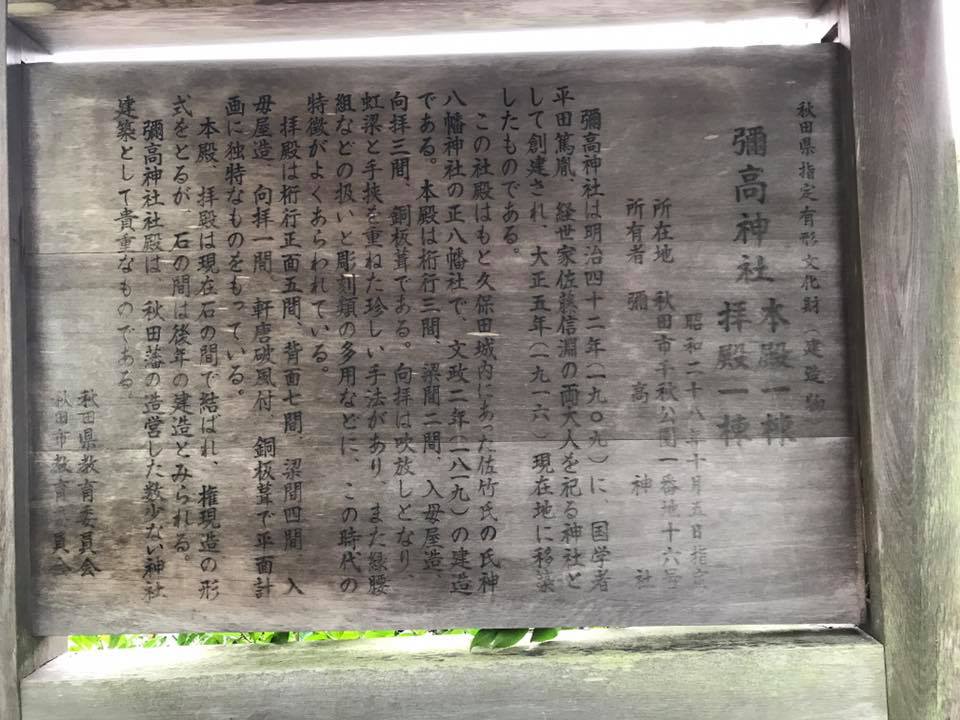 秋田県指定有形文化財（建造物）
彌高神社 本殿一棟
拝殿一棟
昭和二十八年十月五日指定
所在地 秋田市千秋公園一番地十六号
所有者 彌高神社
彌高神社は明治四十二年（一九〇九）に、国学者
平田篤胤、経世家佐藤信淵の両大人を祀る神社と
して創建され、大正五年（一九一六）現在地に移築
したものである。
この社殿はもと久保田城内にあった佐竹氏の氏神
八幡神社の正八幡社で、文政二年（一八一九）の建造
である。本殿は桁行三間、梁間二間、入母屋造、
向拝三間、銅板葺である。向拝は吹放しとなり、
虹梁と手挟を重ねた珍しい手法があり、また縁腰
組などの扱いと彫刻類の多用などに、この時代の
特徴がよくあらわれている。
拝殿は桁行正面五間、背面七間、梁間四間 入
母屋造 向拝一間 軒唐破風付 銅板葺で平面計
画に独特なものをもっている。
本殿、拝殿は現在石の間で結ばれ、権現造の形
式をとるが、石の間は後年の建造とみられる。
彌高神社社殿は 秋田藩の造営した数少ない神社
建築として貴重なものである。
秋田県教育委員会
秋田市教育委員会